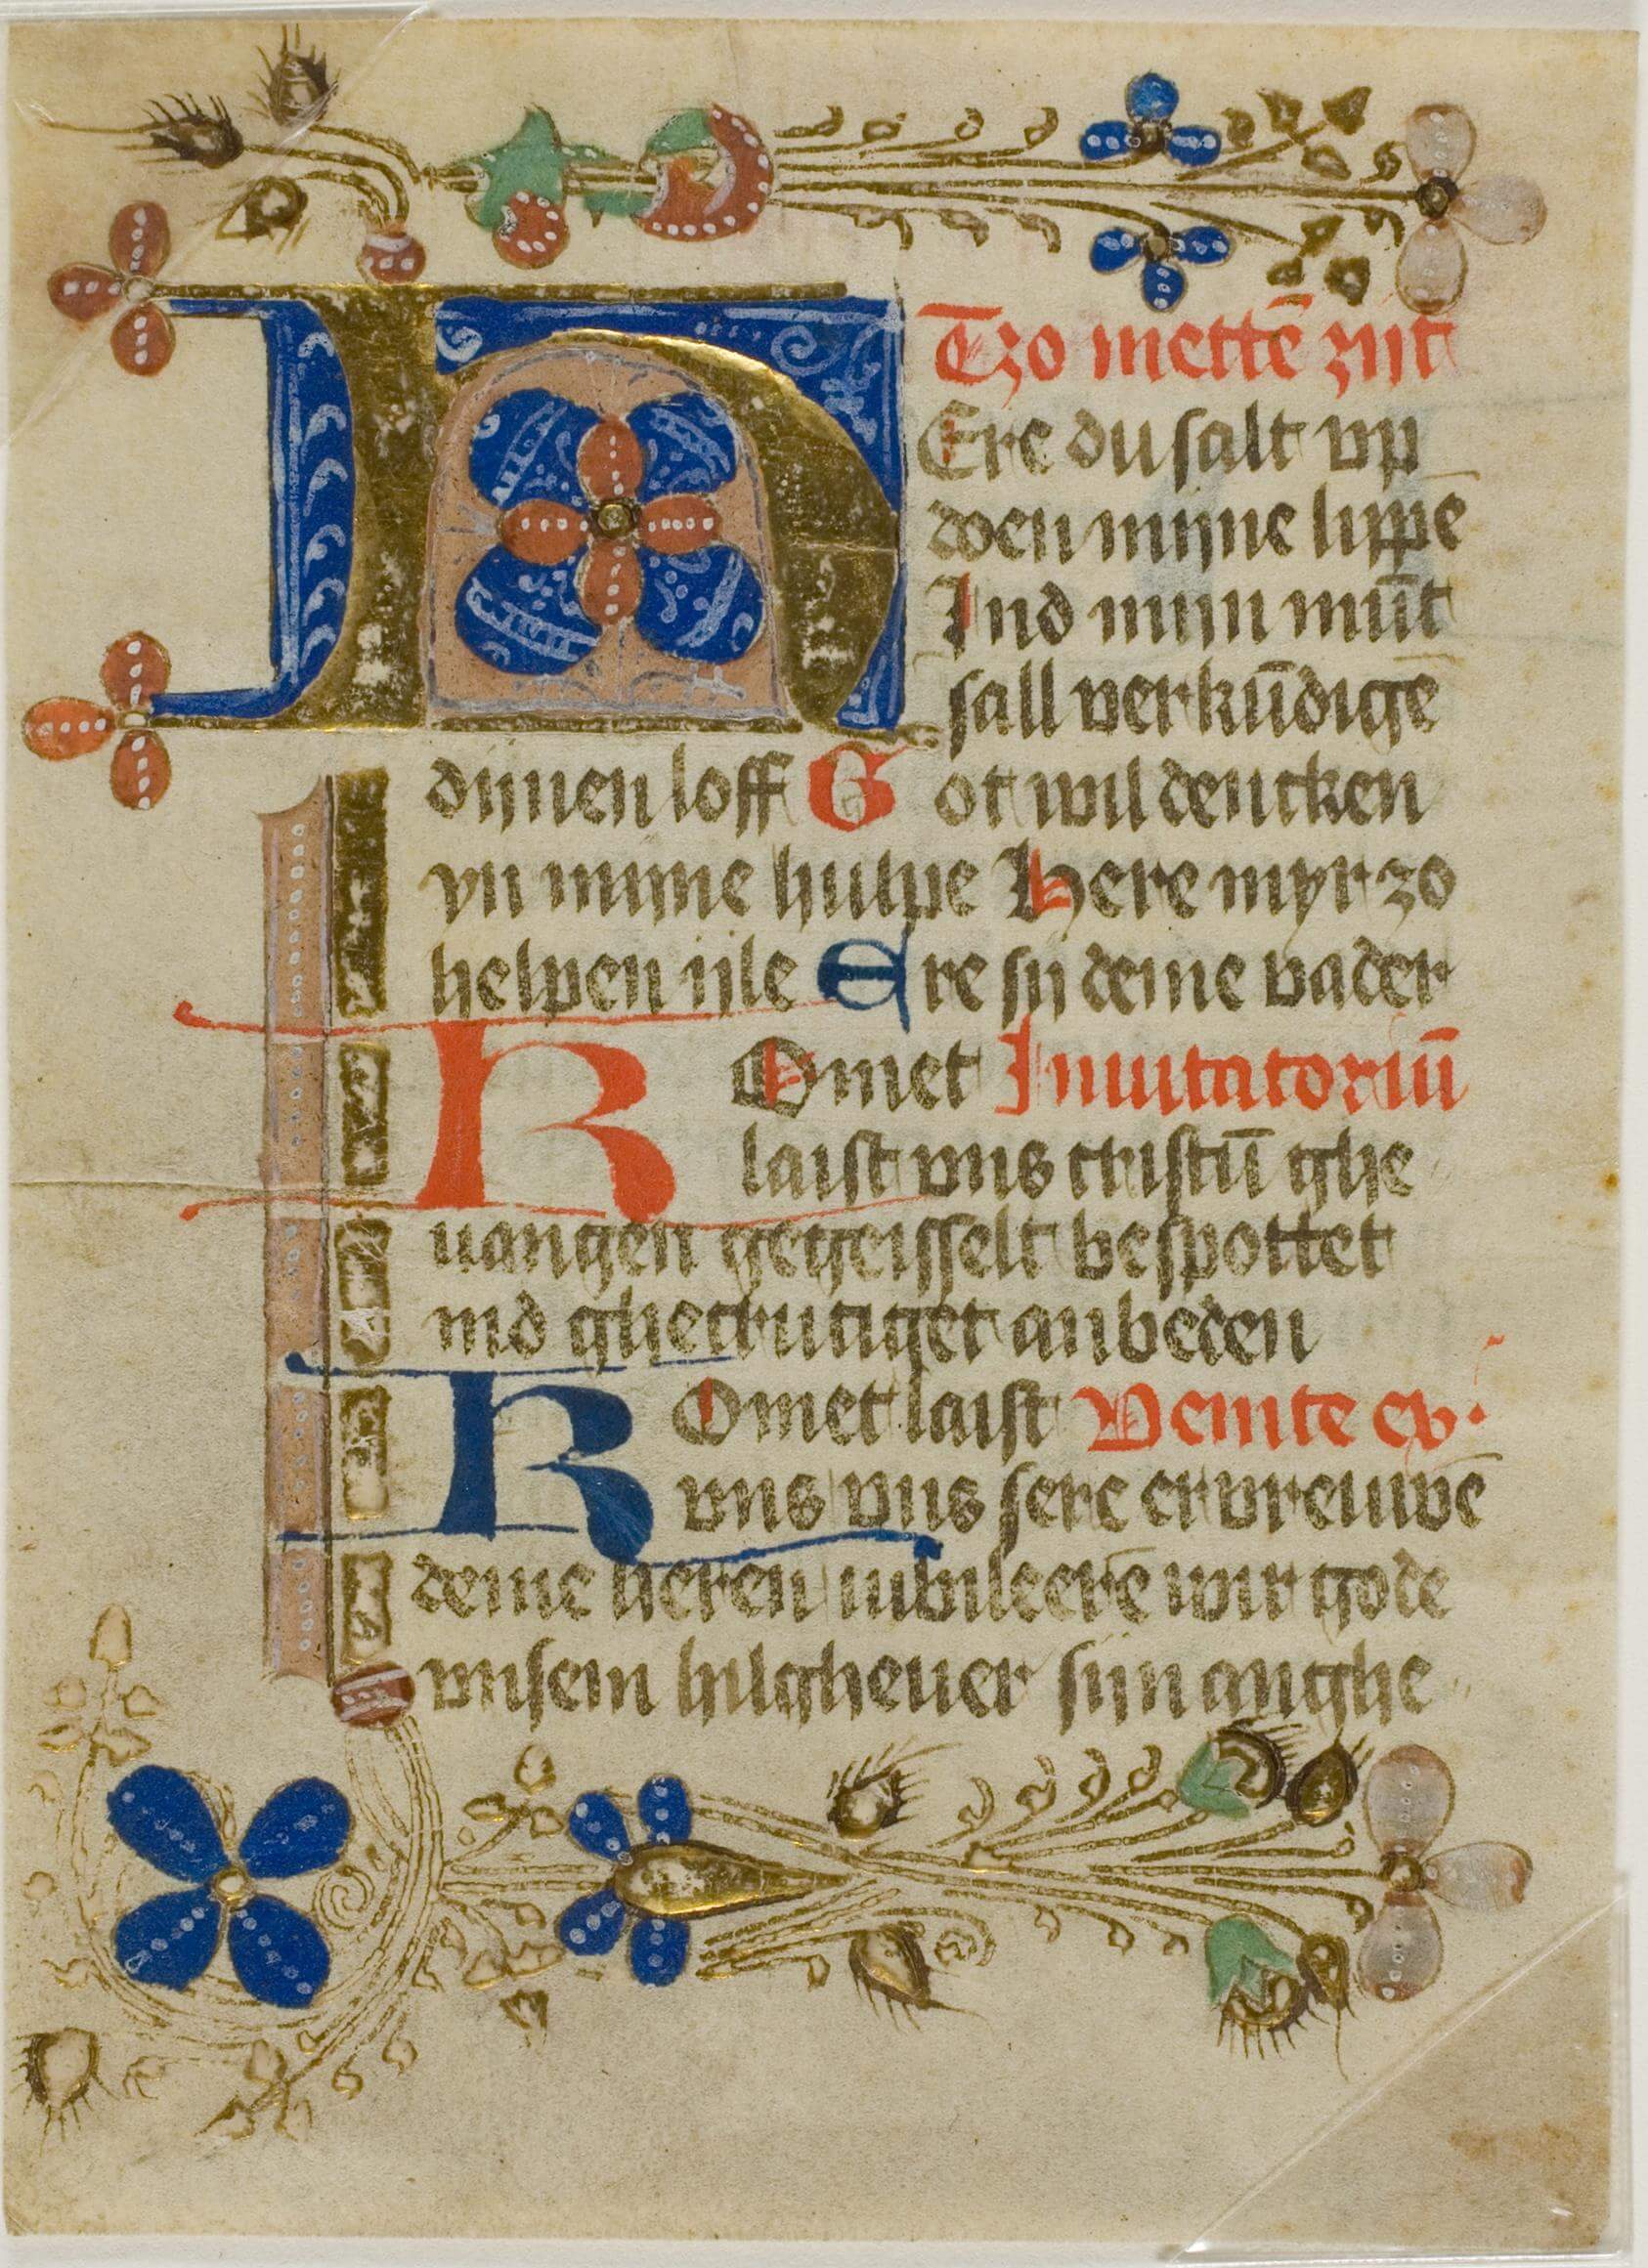 Tzo mettē zijt
HEre du salt vp
doen mijne lippe
Ind mijn mūt
sall verkūdigē
dijnen loff Got wil dencken
yn mijne hulpe Here myr zo
helpen ijle Ere sij deme vader
KOmet Inuitatoriū
laist vns cristū ghe
uangen gegeisselt bespottet
ind ghecrutiget anbeden
KOmet laist Venite ex·
vns vns sere ervreuwē
deme heren iubileerē wir gode
vnsem hilgheuer sijn anghe